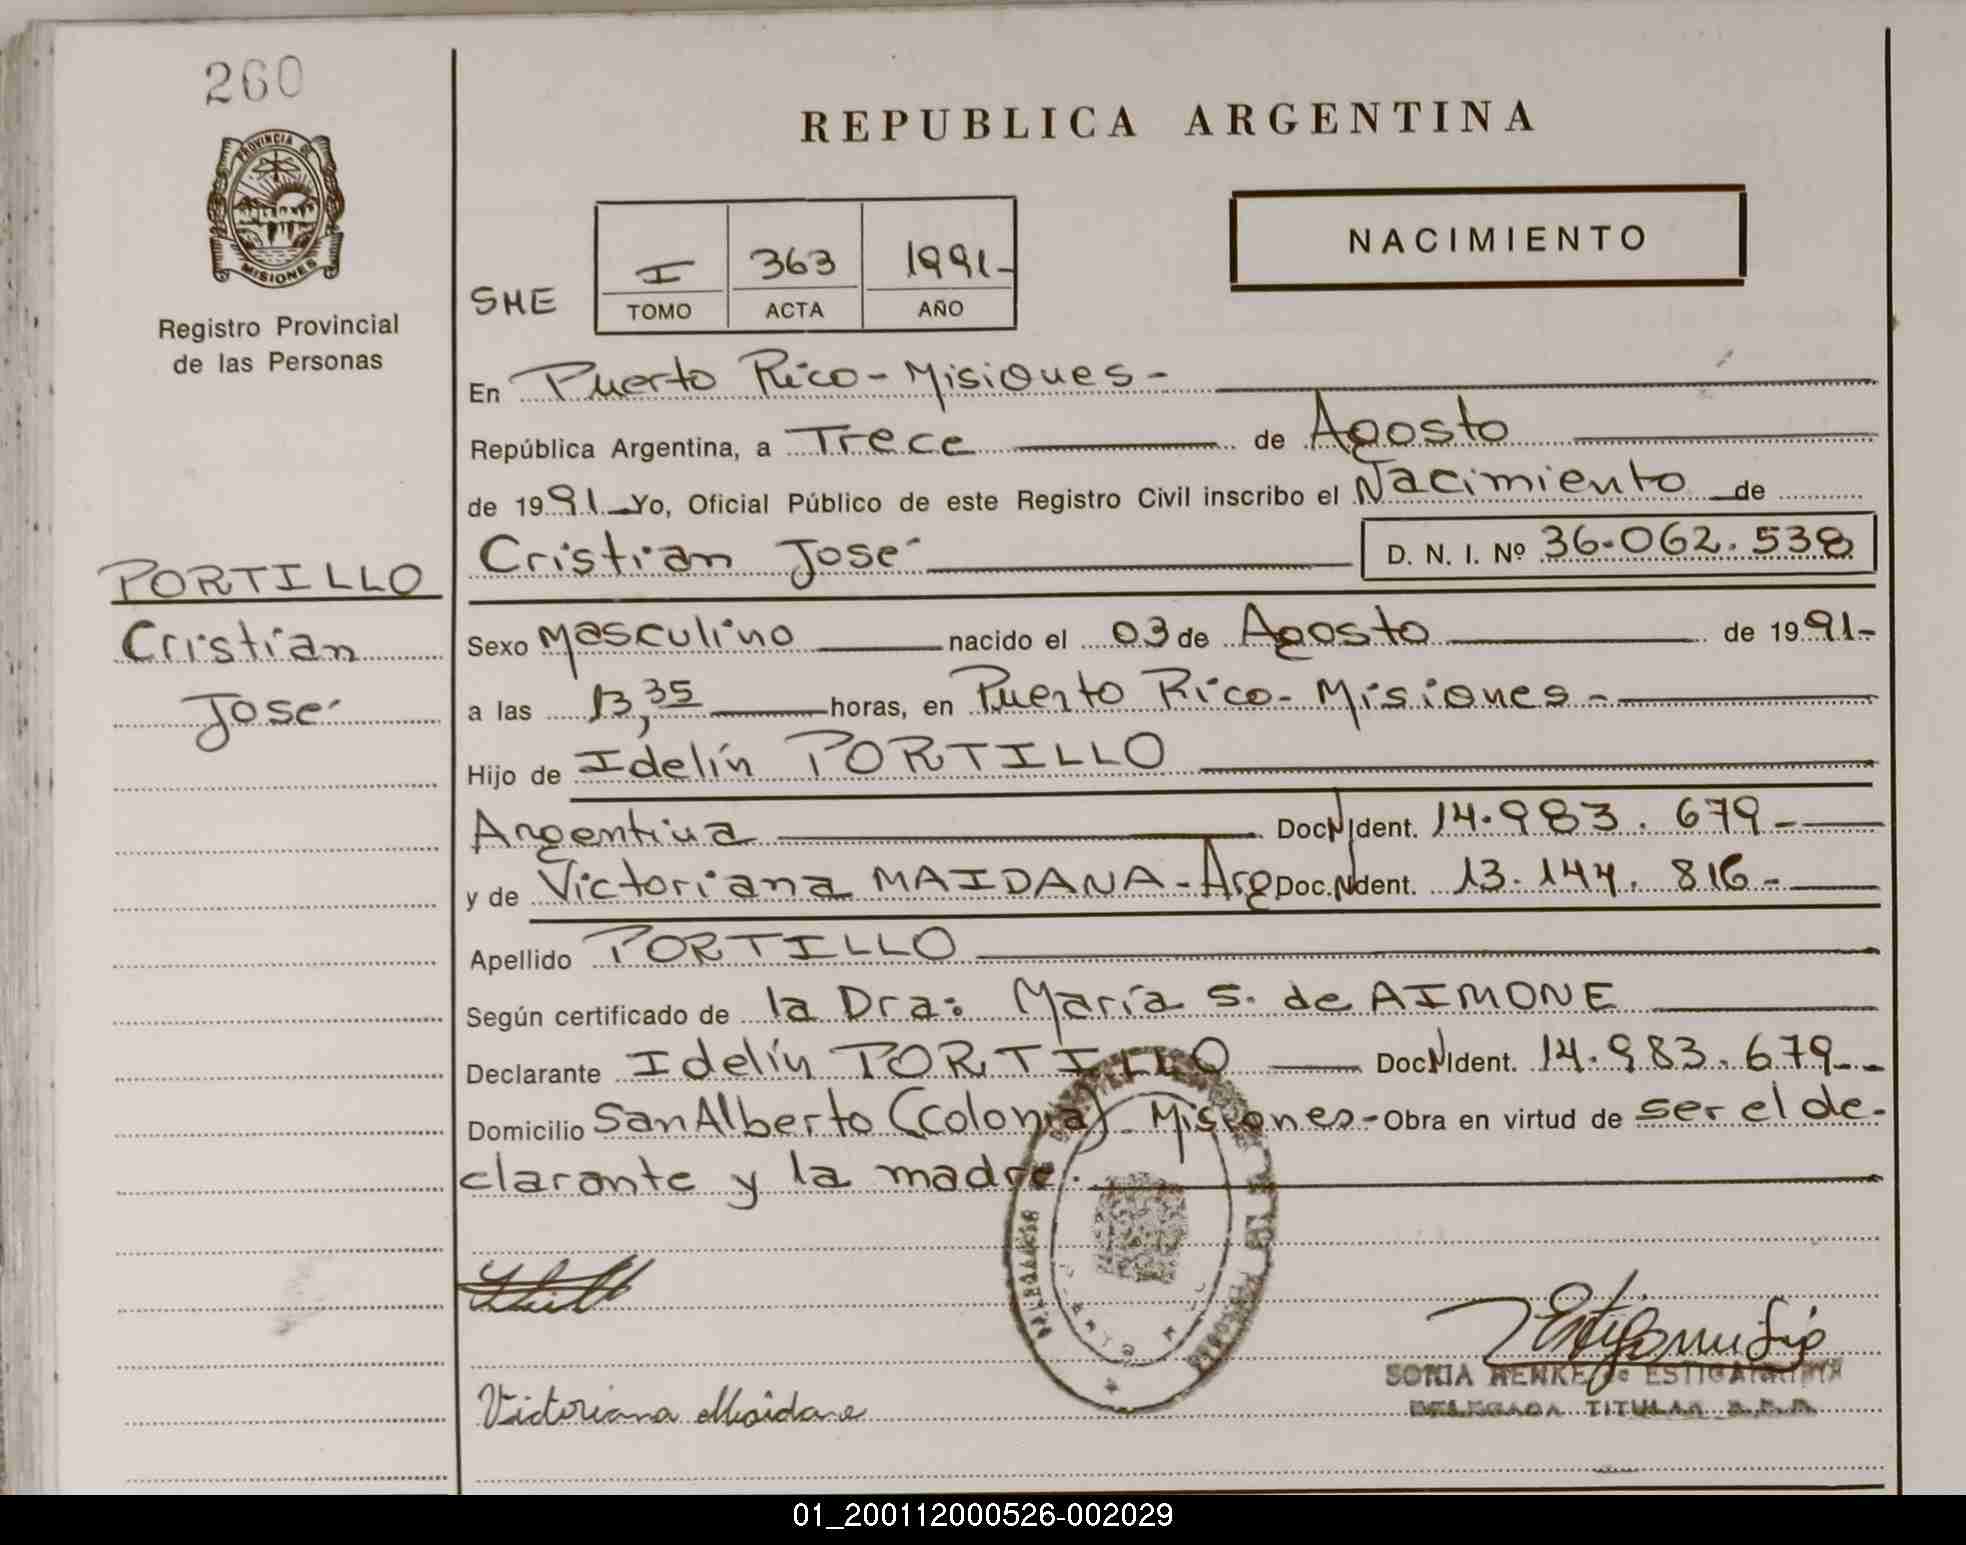 260
PROVINCIA DE
MISIONES
Registro Provincial
de las Personas
PORTILLO
Cristian
José
REPUBLICA ARGENTINA
NACIMIENTO
SHE
I 363 1991-
TOMO ACTA AÑO
En Puerto Rico - Misiones -
República Argentina, a Trece de Agosto
de 1991 Yo, Oficial Público de este Registro Civil inscribo el Nacimiento de
Cristian José D. N. I. Nº 36.062.538
Sexo Masculino nacido el 03 de Agosto de 1991-
a las 13,35 horas, en Puerto Rico - Misiones -
Hijo de Idelín PORTILLO
Argentina Doc N Ident. 14.983.679-
y de Victoriana MAIDANA - Arg Doc. N Ident. 13.144.816-
Apellido PORTILLO
Según certificado de la Dra: María S. de AIMONE
Declarante Idelín PORTILLO Doc N Ident. 14.983.679-
Domicilio San Alberto (Colonia) Misiones - Obra en virtud de ser el de-
clarante y la madre.
Victoriana Maidana
SONIA HENKE de ESTIGARRIBIA
DELEGADA TITULAR R.P.P.
01_200112000526-002029